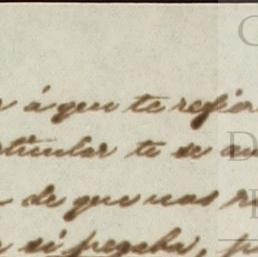 á que te refier
rticular te se au
de que nos r
si pegaba, p